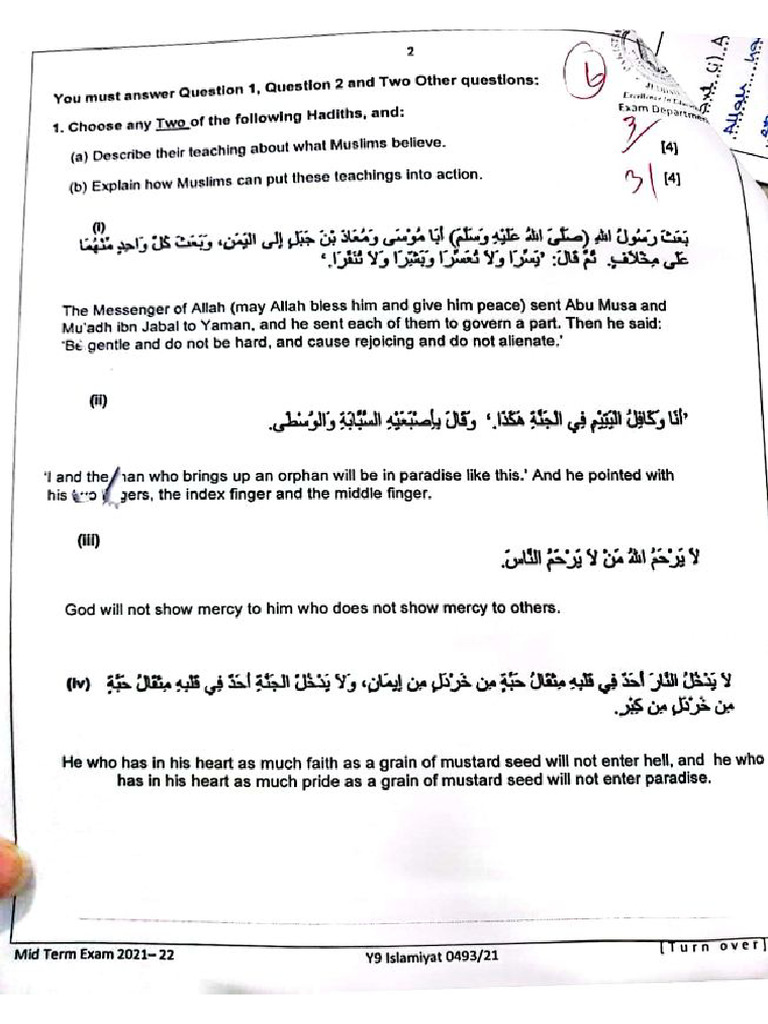 2
You must answer Question 1, Question 2 and Two Other questions:
Exam Departmen
1. Choose any Two of the following Hadiths, and:
(a) Describe their teaching about what Muslims believe.
3
[4]
(b) Explain how Muslims can put these teachings into action.
3
[4]
(i)
بَعَثَ رَسُولُ اللهِ (صَلَّىَ اللهُ عَلَيْهِ وَسَلَّمَ) أَبَا مُوْسَى وَمُعَاذَ بْنَ جَبَلٍ إِلَى اليَمَنِ، وَبَعَثَ كُلَّ وَاحِدٍ مِنْهُمَا
عَلَى مِخْلَافٍ. ثُمَّ قَالَ: 'يَسِّرَا وَلَا تُعَسِّرَا وَبَشِّرَا وَلَا تُنَفِّرَا.'
The Messenger of Allah (may Allah bless him and give him peace) sent Abu Musa and
Mu'adh ibn Jabal to Yaman, and he sent each of them to govern a part. Then he said:
'Be gentle and do not be hard, and cause rejoicing and do not alienate.'
(ii)
'أَنَا وَكَافِلُ اليَتِيْمِ فِي الجَنَّةِ هَكَذَا.' وَقَالَ بِأَصْبَعَيْهِ السَّبَّابَةِ وَالوُسْطَى.
'I and the man who brings up an orphan will be in paradise like this.' And he pointed with
his gers, the index finger and the middle finger.
(iii)
لَا يَرْحَمُ اللهُ مَنْ لَا يَرْحَمُ النَّاسَ.
God will not show mercy to him who does not show mercy to others.
(iv) لَا يَدْخُلُ النَّارَ أَحَدٌ فِي قَلْبِهِ مِثْقَالُ حَبَّةٍ مِن خَرْدَلٍ مِن إِيمَانٍ، وَلَا يَدْخُلُ الجَنَّةَ أَحَدٌ فِي قَلْبِهِ مِثْقَالُ حَبَّةٍ
مِن خَرْدَلٍ مِن كِبْرٍ.
He who has in his heart as much faith as a grain of mustard seed will not enter hell, and he who
has in his heart as much pride as a grain of mustard seed will not enter paradise.
Mid Term Exam 2021–22
Y9 Islamiyat 0493/21
[Turn over]